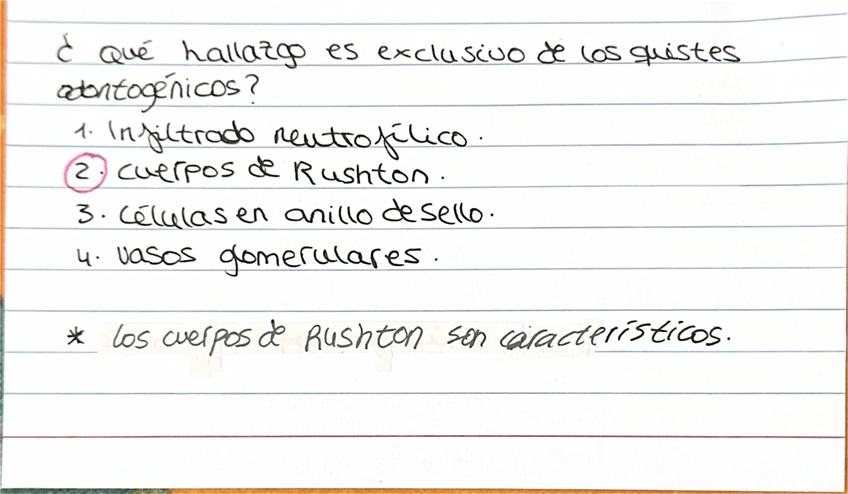 ¿ Qué hallazgo es exclusivo de los quistes
odontogénicos?
1. Infiltrado neutrofílico.
2. cuerpos de Rushton.
3. células en anillo de sello.
4. vasos glomerulares.
* los cuerpos de Rushton son característicos.